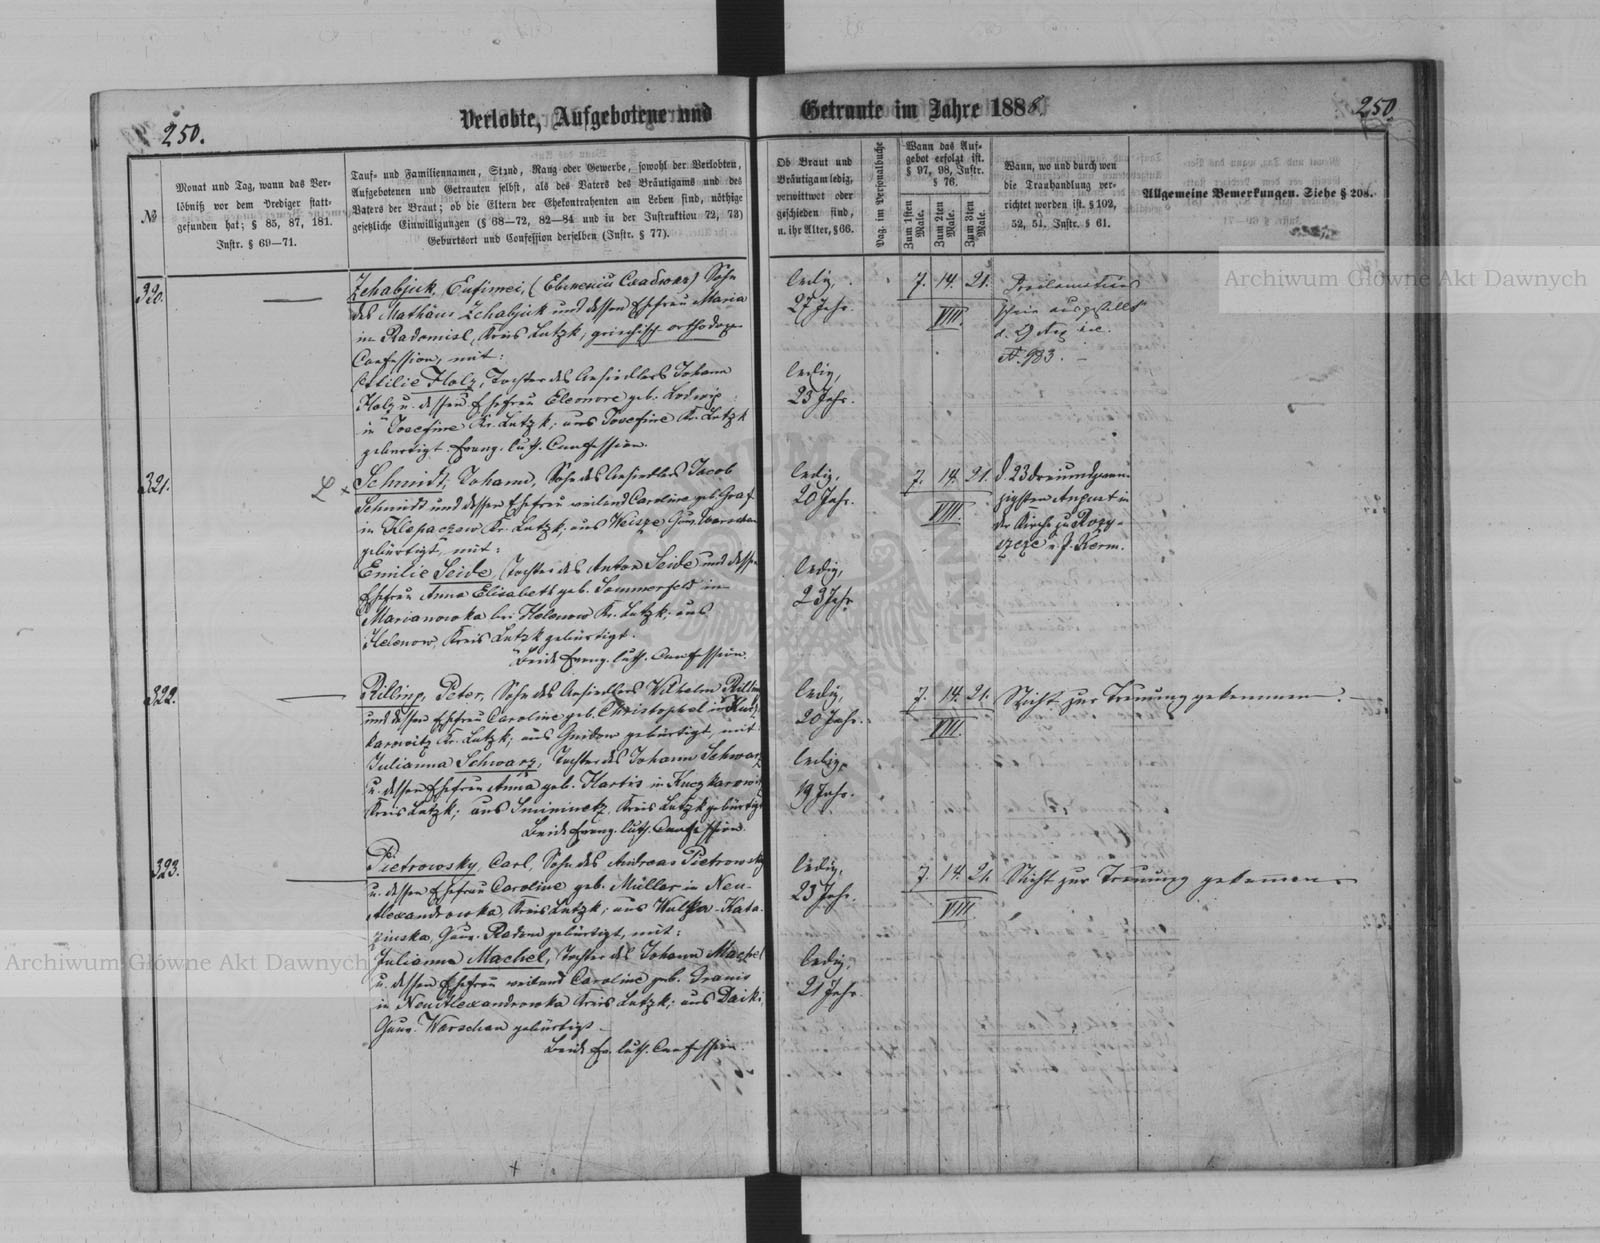 250.
Verlobte, Aufgebotene und
Getraute im Jahre 188
250.
№
Monat und Tag, wann das Ver-
löbniß vor dem Prediger statt-
gefunden hat; § 85, 87, 181.
Instr. § 69—71.
Tauf- und Familiennamen, Stand, Rang oder Gewerbe, sowohl der Verlobten,
Aufgebotenen und Getrauten selbst, als des Vaters des Bräutigams und des
Vaters der Braut; ob die Eltern der Ehekontrahenten am Leben sind, nöthige
gesetzliche Einwilligungen (§ 68—72, 82—84 und in der Instruktion 72, 73)
Geburtsort und Confession derselben (Instr. § 77).
Ob Braut und
Bräutigam ledig,
verwittwet oder
geschieden sind,
u. ihr Alter, § 66.
Pag. im Personalbuche
Wann das Auf-
gebot erfolgt ist.
§ 97, 98, Instr.
§ 76.
Zum 1sten Male.
Zum 2ten Male.
Zum 3ten Male.
Wann, wo und durch wen
die Trauhandlung ver-
richtet worden ist. § 102,
52, 51. Instr. § 61.
Allgemeine Bemerkungen. Siehe § 208.
320.
Zchabjuk, Eufimei, Sohn
des Mathäus Zchabjuk und dessen Ehefrau Maria
in Radomisl, Kreis Lutzk, griechisch orthodoxe
Confession, mit:
Ottilie Holz, Tochter des Ansiedlers Johann
Holz u. dessen Ehefrau Eleonore geb. Ludwig
in Josefine Kr. Lutzk; aus Josefine Kr. Lutzk
gebürtigt. Evang. luth. Confession.
ledig,
27 Jahr.
7. 14. 21.
VIII.
schein ausgestellt
№ 983.
ledig,
23 Jahr.
321.
Schmidt, Johann, Sohn des Ansiedlers Jacob
Schmidt und dessen Ehefrau weiland Caroline geb. Graf
in Klepaczow Kr. Lutzk, aus Gouv. Warschau
gebürtigt, mit:
Emilie Seide, Tochter des Anton Seide und dessen
Ehefrau Anna Elisabeth geb. Sommerfeld in
Marianowka bei Helenow Kr. Lutzk; aus
Helenow, Kreis Lutzk gebürtigt.
Beide Evang. luth. Confession.
ledig,
20 Jahr.
7. 14. 21.
VIII.
d. 23 dreiundzwan-
zigsten August in
der Kirche zu Rozy-
szcze d. P. Kerm.
ledig,
23 Jahr
322.
Rilling, Peter, Sohn des Ansiedlers Wilhelm Rilling
und dessen Ehefrau Caroline geb. Christophel in Kucz-
karowitz Kr. Lutzk; aus gebürtigt, mit
Julianna Schwarz, Tochter des Johann Schwarz
u. dessen Ehefrau Anna geb. in Kuczkarowitz
Kreis Lutzk; aus Kreis Lutzk gebürtigt
Beide Evang. luth. Confession.
ledig,
20 Jahr.
7. 14. 21.
VIII.
Nicht zur Trauung gekommen.
ledig,
19 Jahr.
323.
Pietrowsky, Carl, Sohn des Andreas Pietrowsky
u. dessen Ehefrau Caroline geb. Müller in Neu-
Alexandrowka, Kreis Lutzk; aus Wulka-Kata-
Gouv. Radom gebürtigt, mit:
Julianna Machel, Tochter des Johann Machel
u. dessen Ehefrau weiland Caroline geb.
in Neu Alexandrowka Kreis Lutzk; aus
Gouv. Warschau gebürtigt
Beide Ev. luth. Confession.
ledig,
23 Jahr.
7. 14. 21.
VIII
Nicht zur Trauung gekommen.
ledig,
21 Jahr
Archiwum Główne Akt Dawnych
Archiwum Główne Akt Dawnych